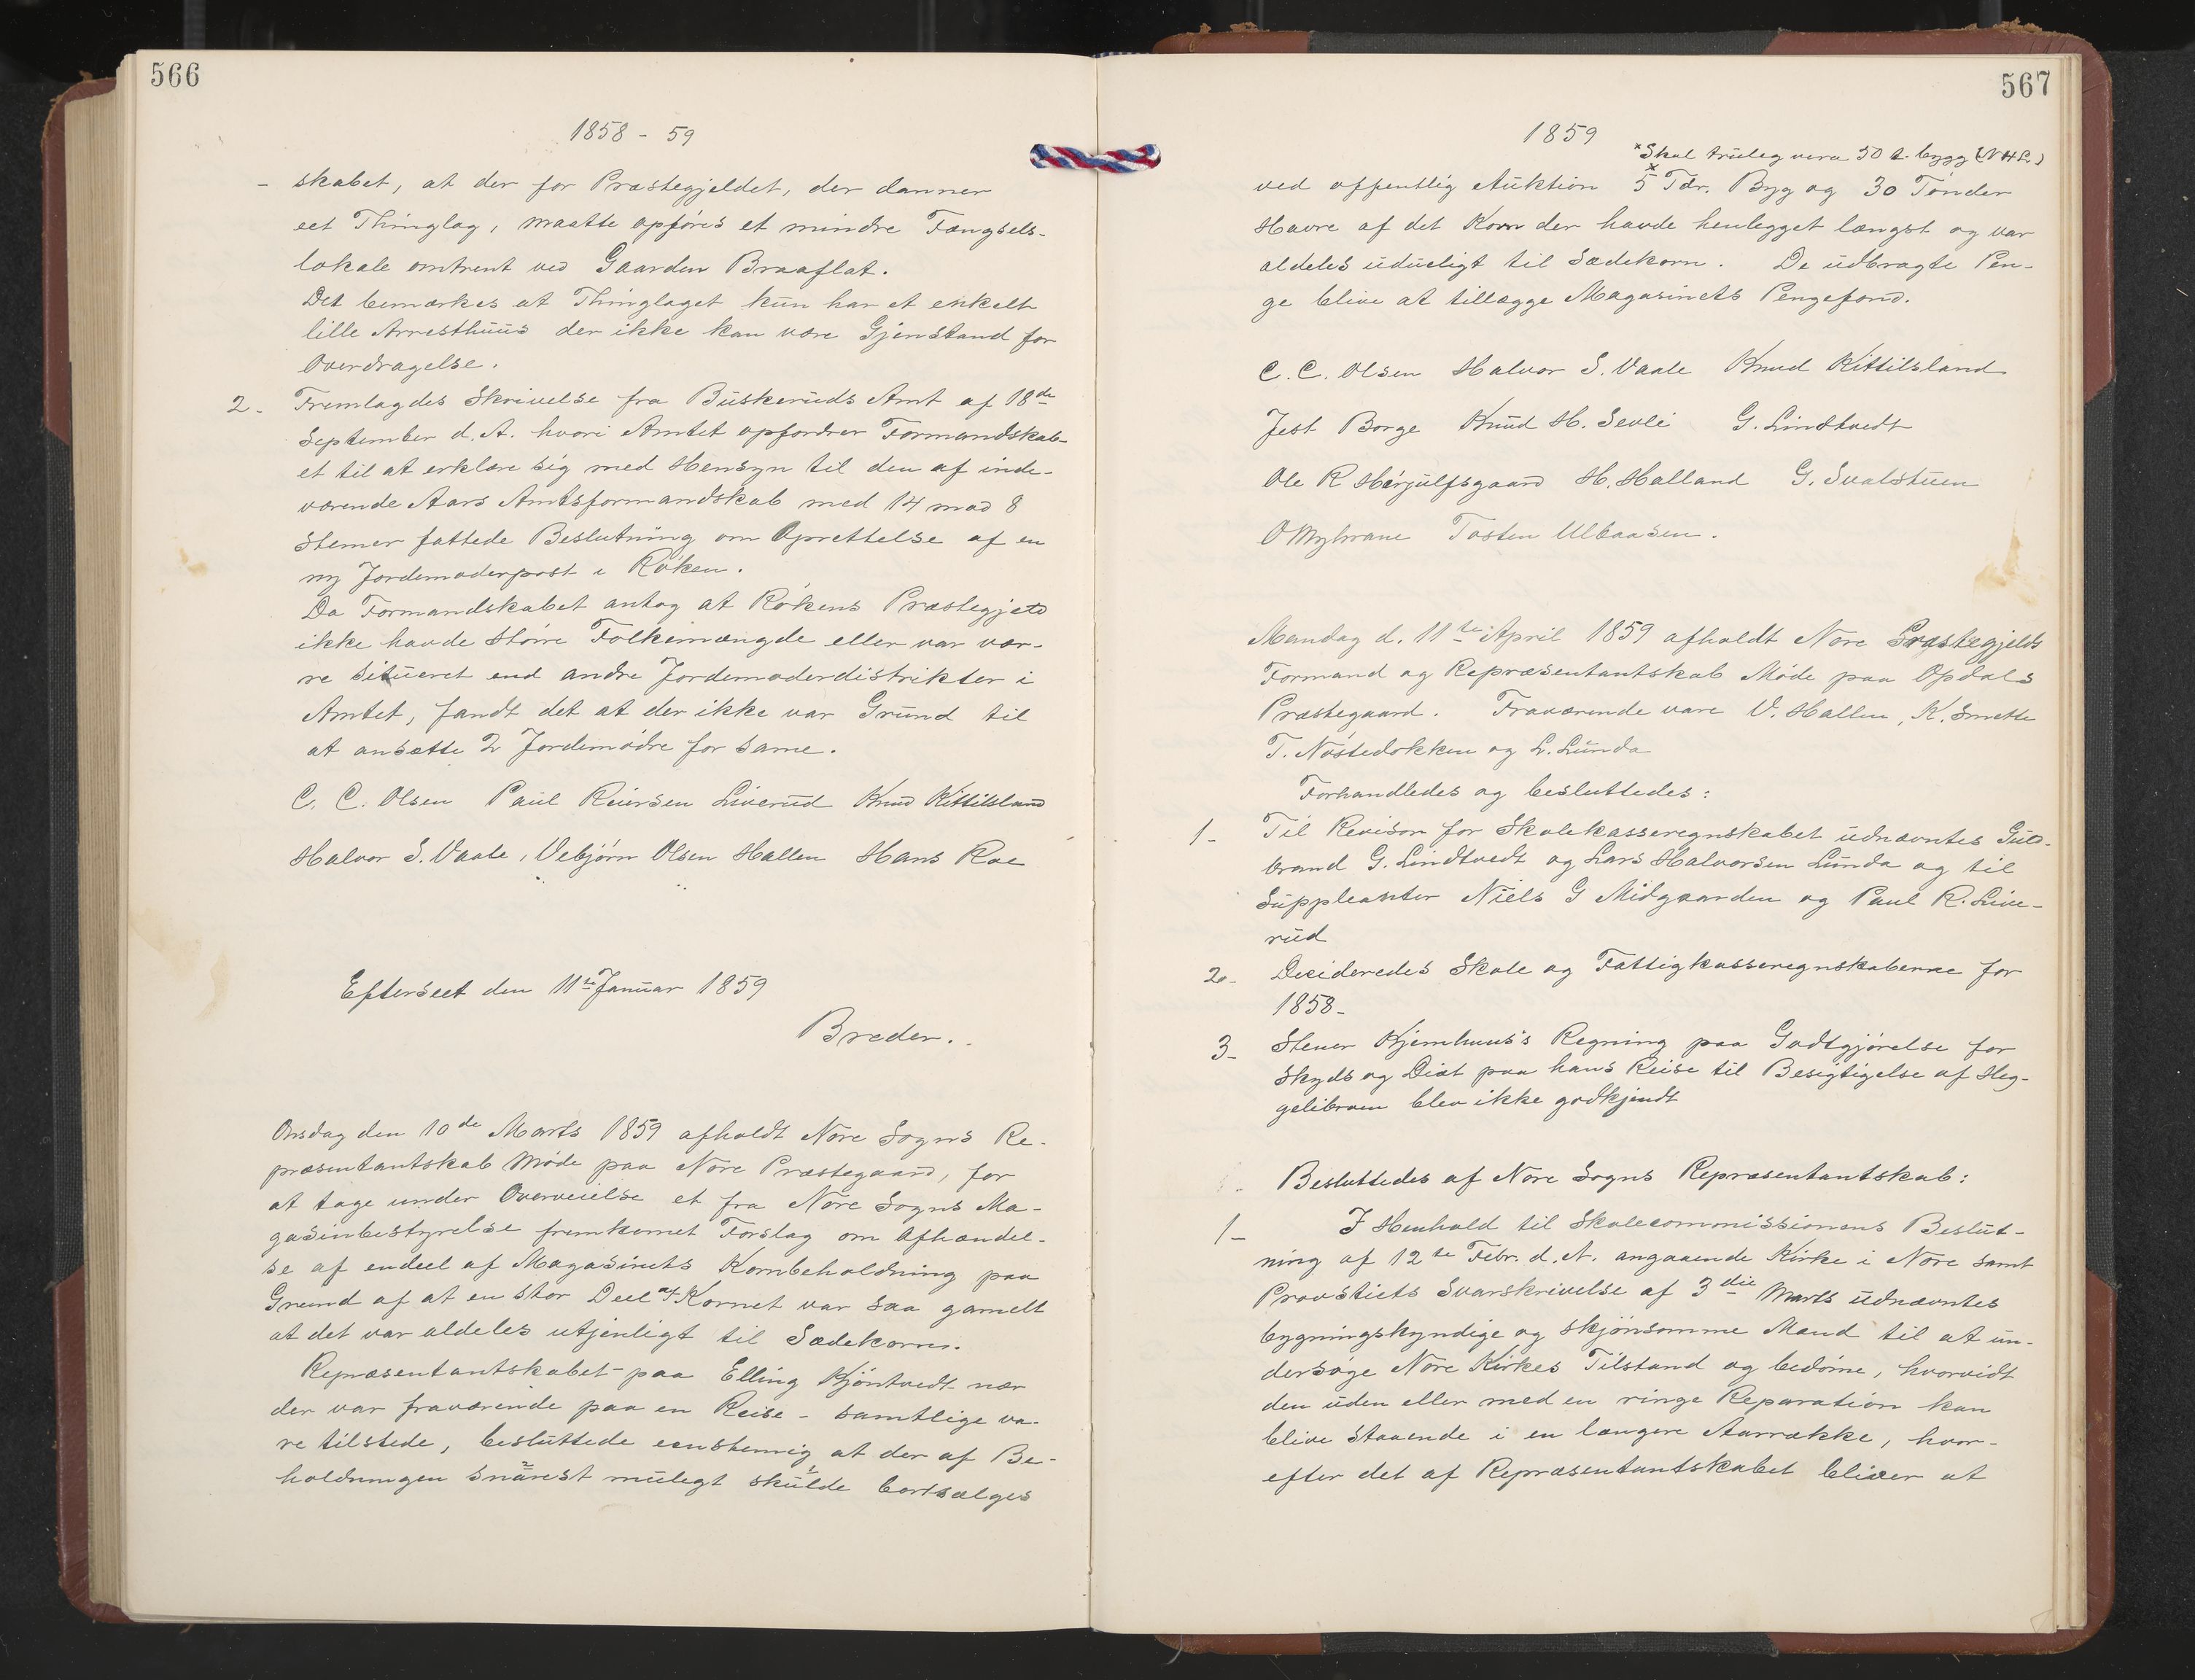 566
1858 - 59
- skabet, at der for Præstegjeldet, der danner
eet Thinglag, maatte opføres et mindre Fængsels-
lokale omtrent ved Gaarden Braaflat.
Det bemærkes at Thinglaget kun har et enkelt
lille Arresthuus der ikke kan være Gjenstand for
Overdragelse.
2- Fremlagdes Skrivelse fra Buskeruds Amt af 18de
September d. A. hvori Amtet opfordrer Formandskab-
et til at erklære sig med Hensyn til den af inde-
værende Aars Amtsformandskab med 14 mod 8
Stemer fattede Beslutning om Oprettelse af en
ny Jordemoderpost i Røken.
Da Formandskabet antog at Røkens Præstegjeld
ikke havde større Folkemængde eller var vær-
re situeret end andre Jordemoderdistrikter i
Amtet, fandt det at der ikke var Grund til
at ansætte 2 Jordemødre for same.
C. C. Olsen Paul Reiersen Liverud Knud Kittilsland
Halvor S. Vaale, Vebjørn Olsen Hallen Hans Roe
Efterseet den 11te Januar 1859
Breder.
Onsdag den 10de Marts 1859 afholdt Nore Sogns Re-
præsentantskab Møde paa Nore Præstegaard, for
at tage under Overveielse et fra Nore Sogns Ma-
gasinbestyrelse fremkomet Forslag om Afhændel-
se af endeel af Magasinets Kornbeholdning paa
Grund af at en stor Deel af Kornet var saa gamelt
at det var aldeles utjenligt til Sædekorn.
Repræsentantskabet - paa Elling Kjøntvedt nær
der var fraværende paa en Reise - samtlige va-
re tilstede, besluttede eenstemig at der af Be-
holdningen snarest mulegt skulde bortsælges
567
1859
x Skal truleg vera 50 t. bygg (NHL)
x
ved offentlig Auktion 5 Tdr. Byg og 30 Tønder
Havre af det Korn der havde henlegget længst og var
aldeles udueligt til Sædekorn. De udbragte Pen-
ge blive at tillægge Magasinets Pengefond.
C. C. Olsen Halvor S. Vaale Knud Kittilsland
Jest Borge Knud H. Sevli G. Lindtvedt
Ole R Herjulfsgaard H. Halland G. Svalstuen
O Myhrane Tosten Ulbaasen.
Mandag d. 11te April 1859 afholdt Nore Præstegjelds
Formand og Repræsentantskab Møde paa Opdals
Præstegaard. Fraværende vare V. Hallen, K. Smette
T. Nøstedokken og L. Lunda
Forhandledes og besluttedes:
1- Til Revisor for Skolekasseregnskabet udnævntes Guld-
brand G. Lindtvedt og Lars Halvorsen Lunda og til
Suppleanter Niels G Midgaarden og Paul R. Live-
rud
2- Decideredes Skole og Fattigkasseregnskaberne for
1858-
3- Stener Kjemhuus's Regning paa Godtgjørelse for
Skyds og Diæt paa hans Reise til Besigtigelse af Heg-
gelibroen blev ikke godkjendt
Besluttedes af Nore Sogns Repræsentantskab:
1- I Henhold til Skolecommissionens Beslut-
ning af 12te Febr. d. A. angaaende Kirke i Nore samt
Provstiets Svarskrivelse af 3die Marts udnævntes
bygningskyndige og skjønsomme Mænd til at un-
dersøge Nore Kirkes Tilstand og bedøme, hvorvidt
den uden eller med en ringe Reparation kan
blive staaende i en længere Aarrække, hvor-
efter det af Repræsentantskabet bliver at